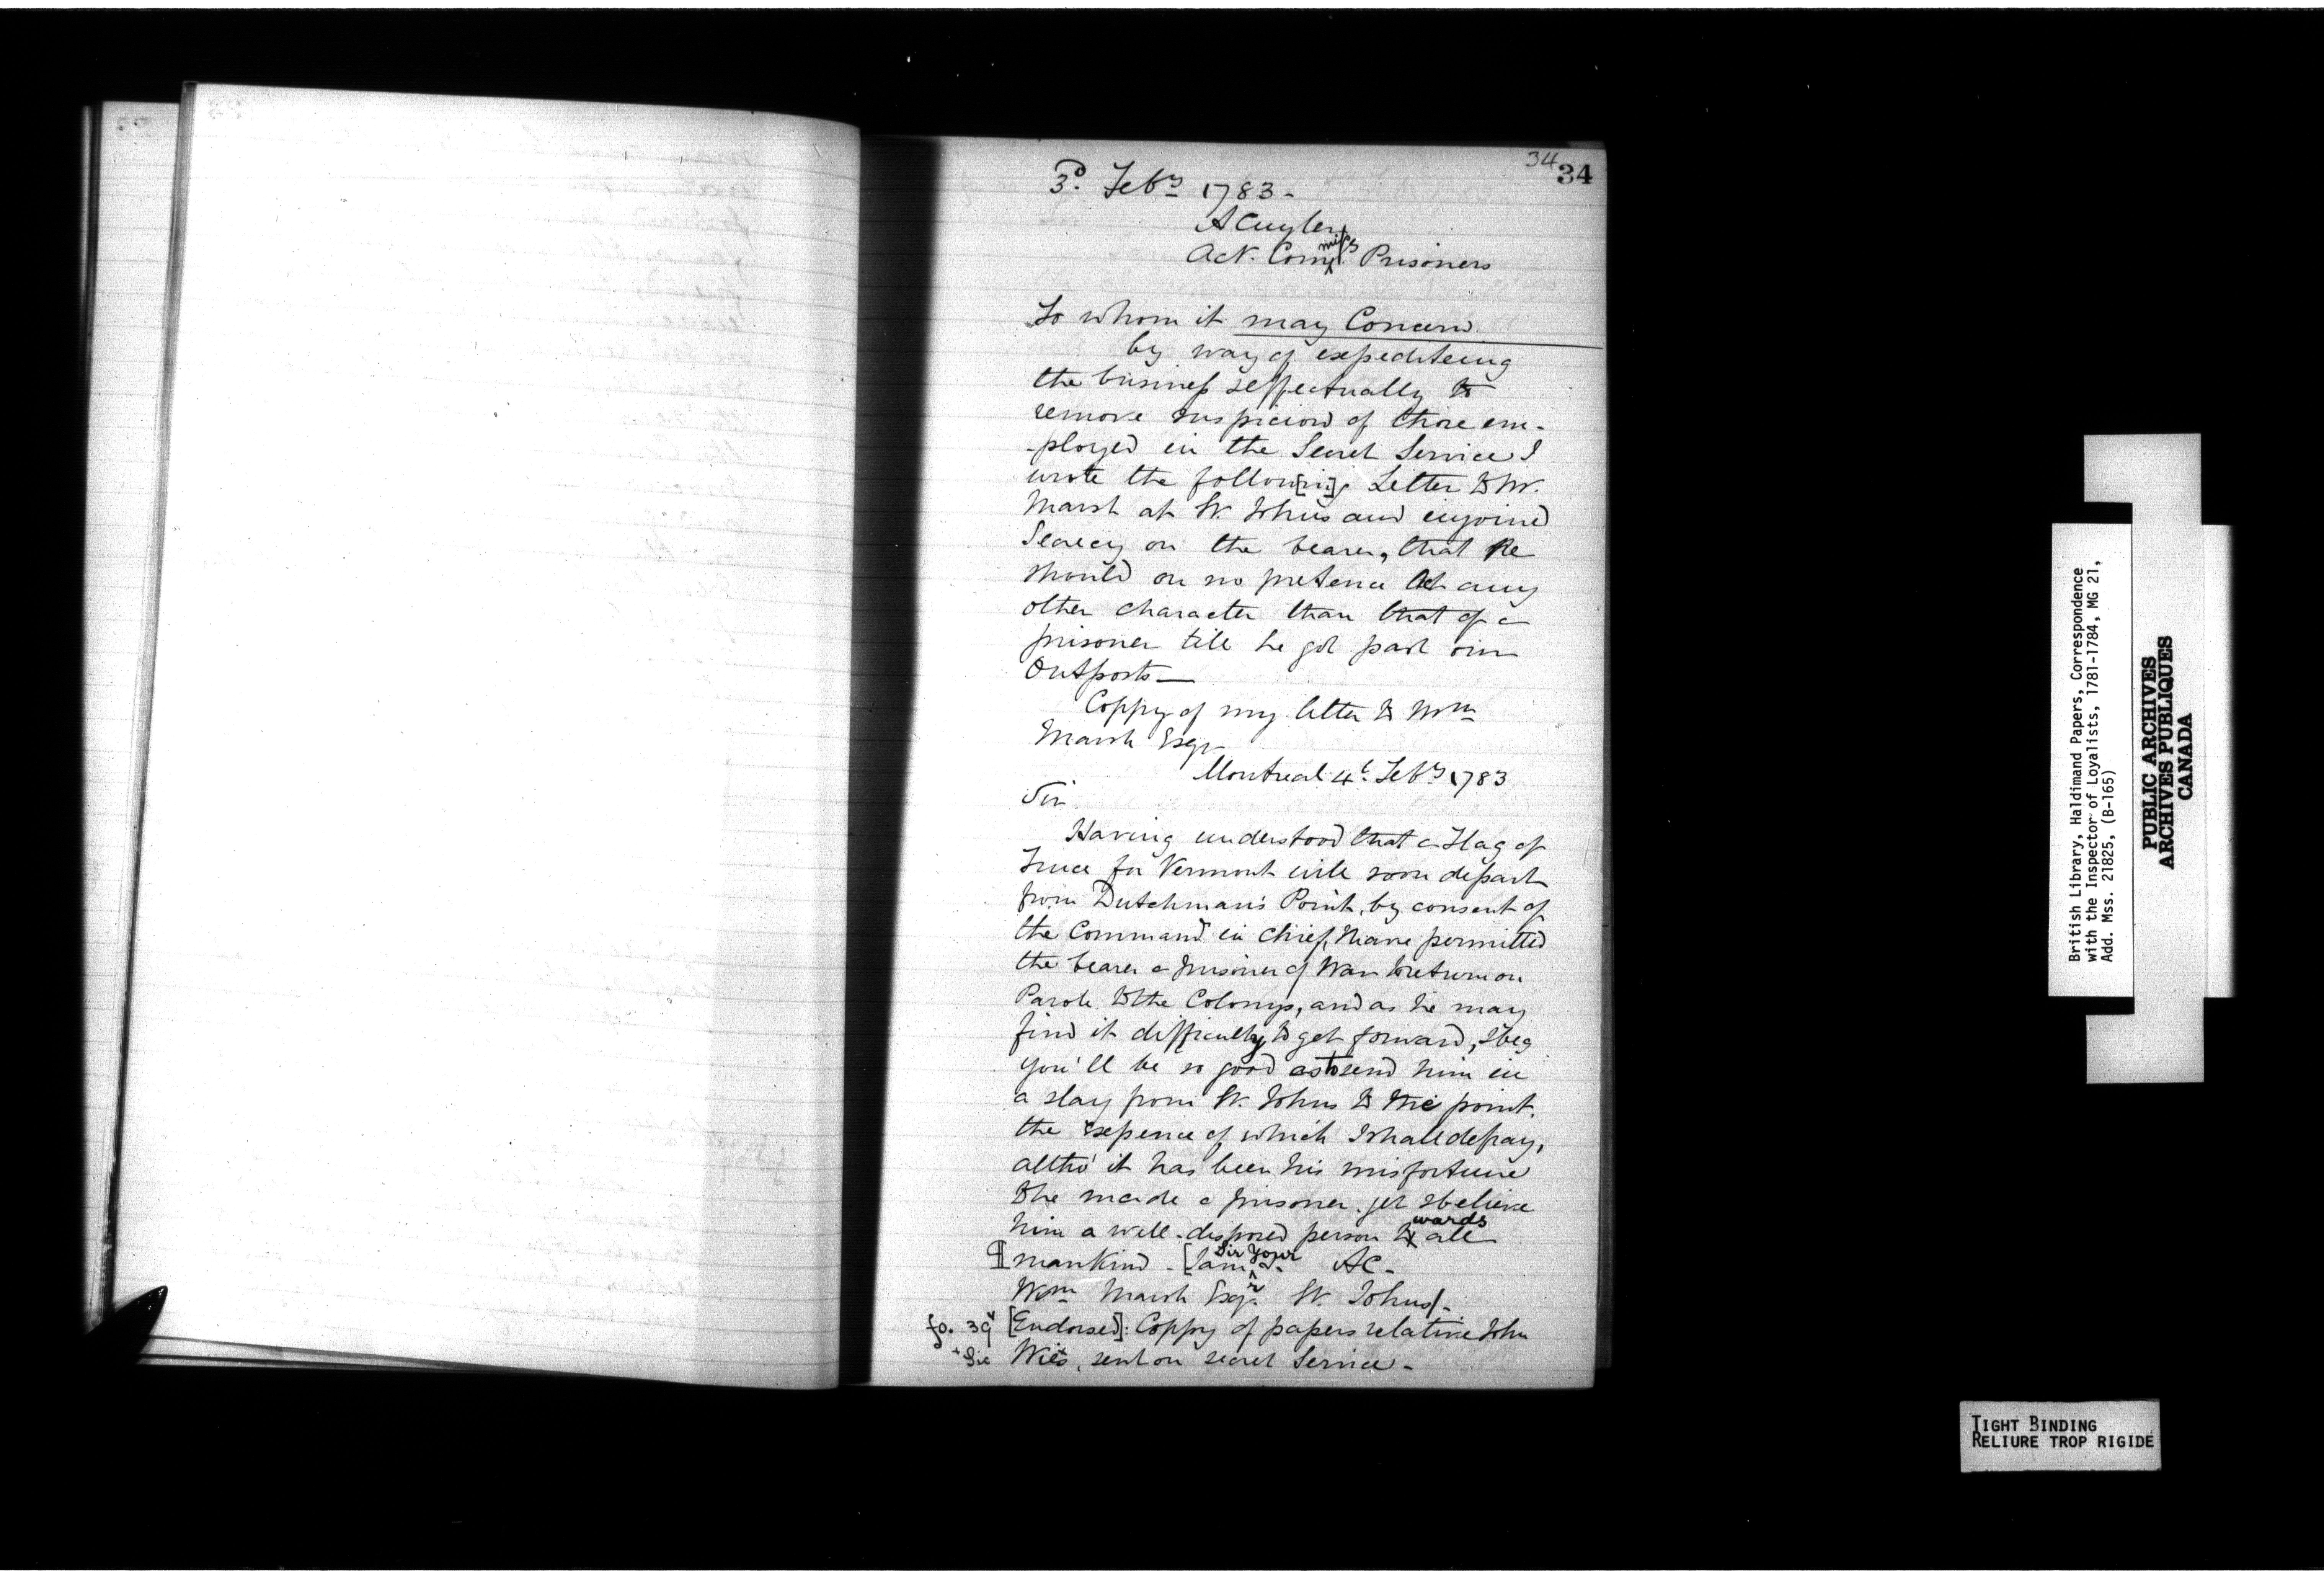 34
34
3d. Feby 1783 -
ACuyler
Act. Commissy Prisoners
To whom it may Concern.
by way of expediteing
the business & effectually to
remove suspicion of those em-
-ployed in the Secret Service I
wrote the follow[in]g Letter to Mr.
Marsh at St. Johns and enjoined
Secrecy on the bearer, that he
should on no pretence Act any
other character than that of a
prisoner till he got past our
Outposts—
Coppy of my letter to Wm
Marsh Esqr-
Montreal 4t. Feby 1783
Sir
Having understood that a Flag of
Truce for Vermont will soon depart
from Dutchman's Point, by consent of
the Command in chief, have permitted
the bearer a prisoner of War to return on
Parole to the Colonys, and as he may
find it difficulty to get forward, I beg
you'll be so good as to send him in
a slay from St. Johns to the point.
the expence of which I shall defray,
altho' it has been his misfortune
to be made a prisoner, yet I believe
him a well-disposed person towards all
mankind - [I am Sir Your &. AC -
Wm Marsh Esqr. St. Johns/-
fo. 39v [Endorsed]: Coppy of papers relative John
+ Sic Wits+, sent on secret Service -
British Library, Haldimand Papers, Correspondence
with the Inspector of Loyalists, 1781-1784, MG 21,
Add. Mss. 21825, (B-165)
PUBLIC ARCHIVES
ARCHIVES PUBLIQUES
CANADA
TIGHT BINDING
RELIURE TROP RIGIDE